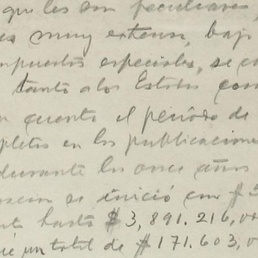 que les son peculiares,
es muy extensa, bajo
impuestos especiales, se
tanto a los Estados com
en cuanto el período de
pletos en las publicacione
durante los once años
se inició con $3
hasta $3,891.216,
un total de $171.603,